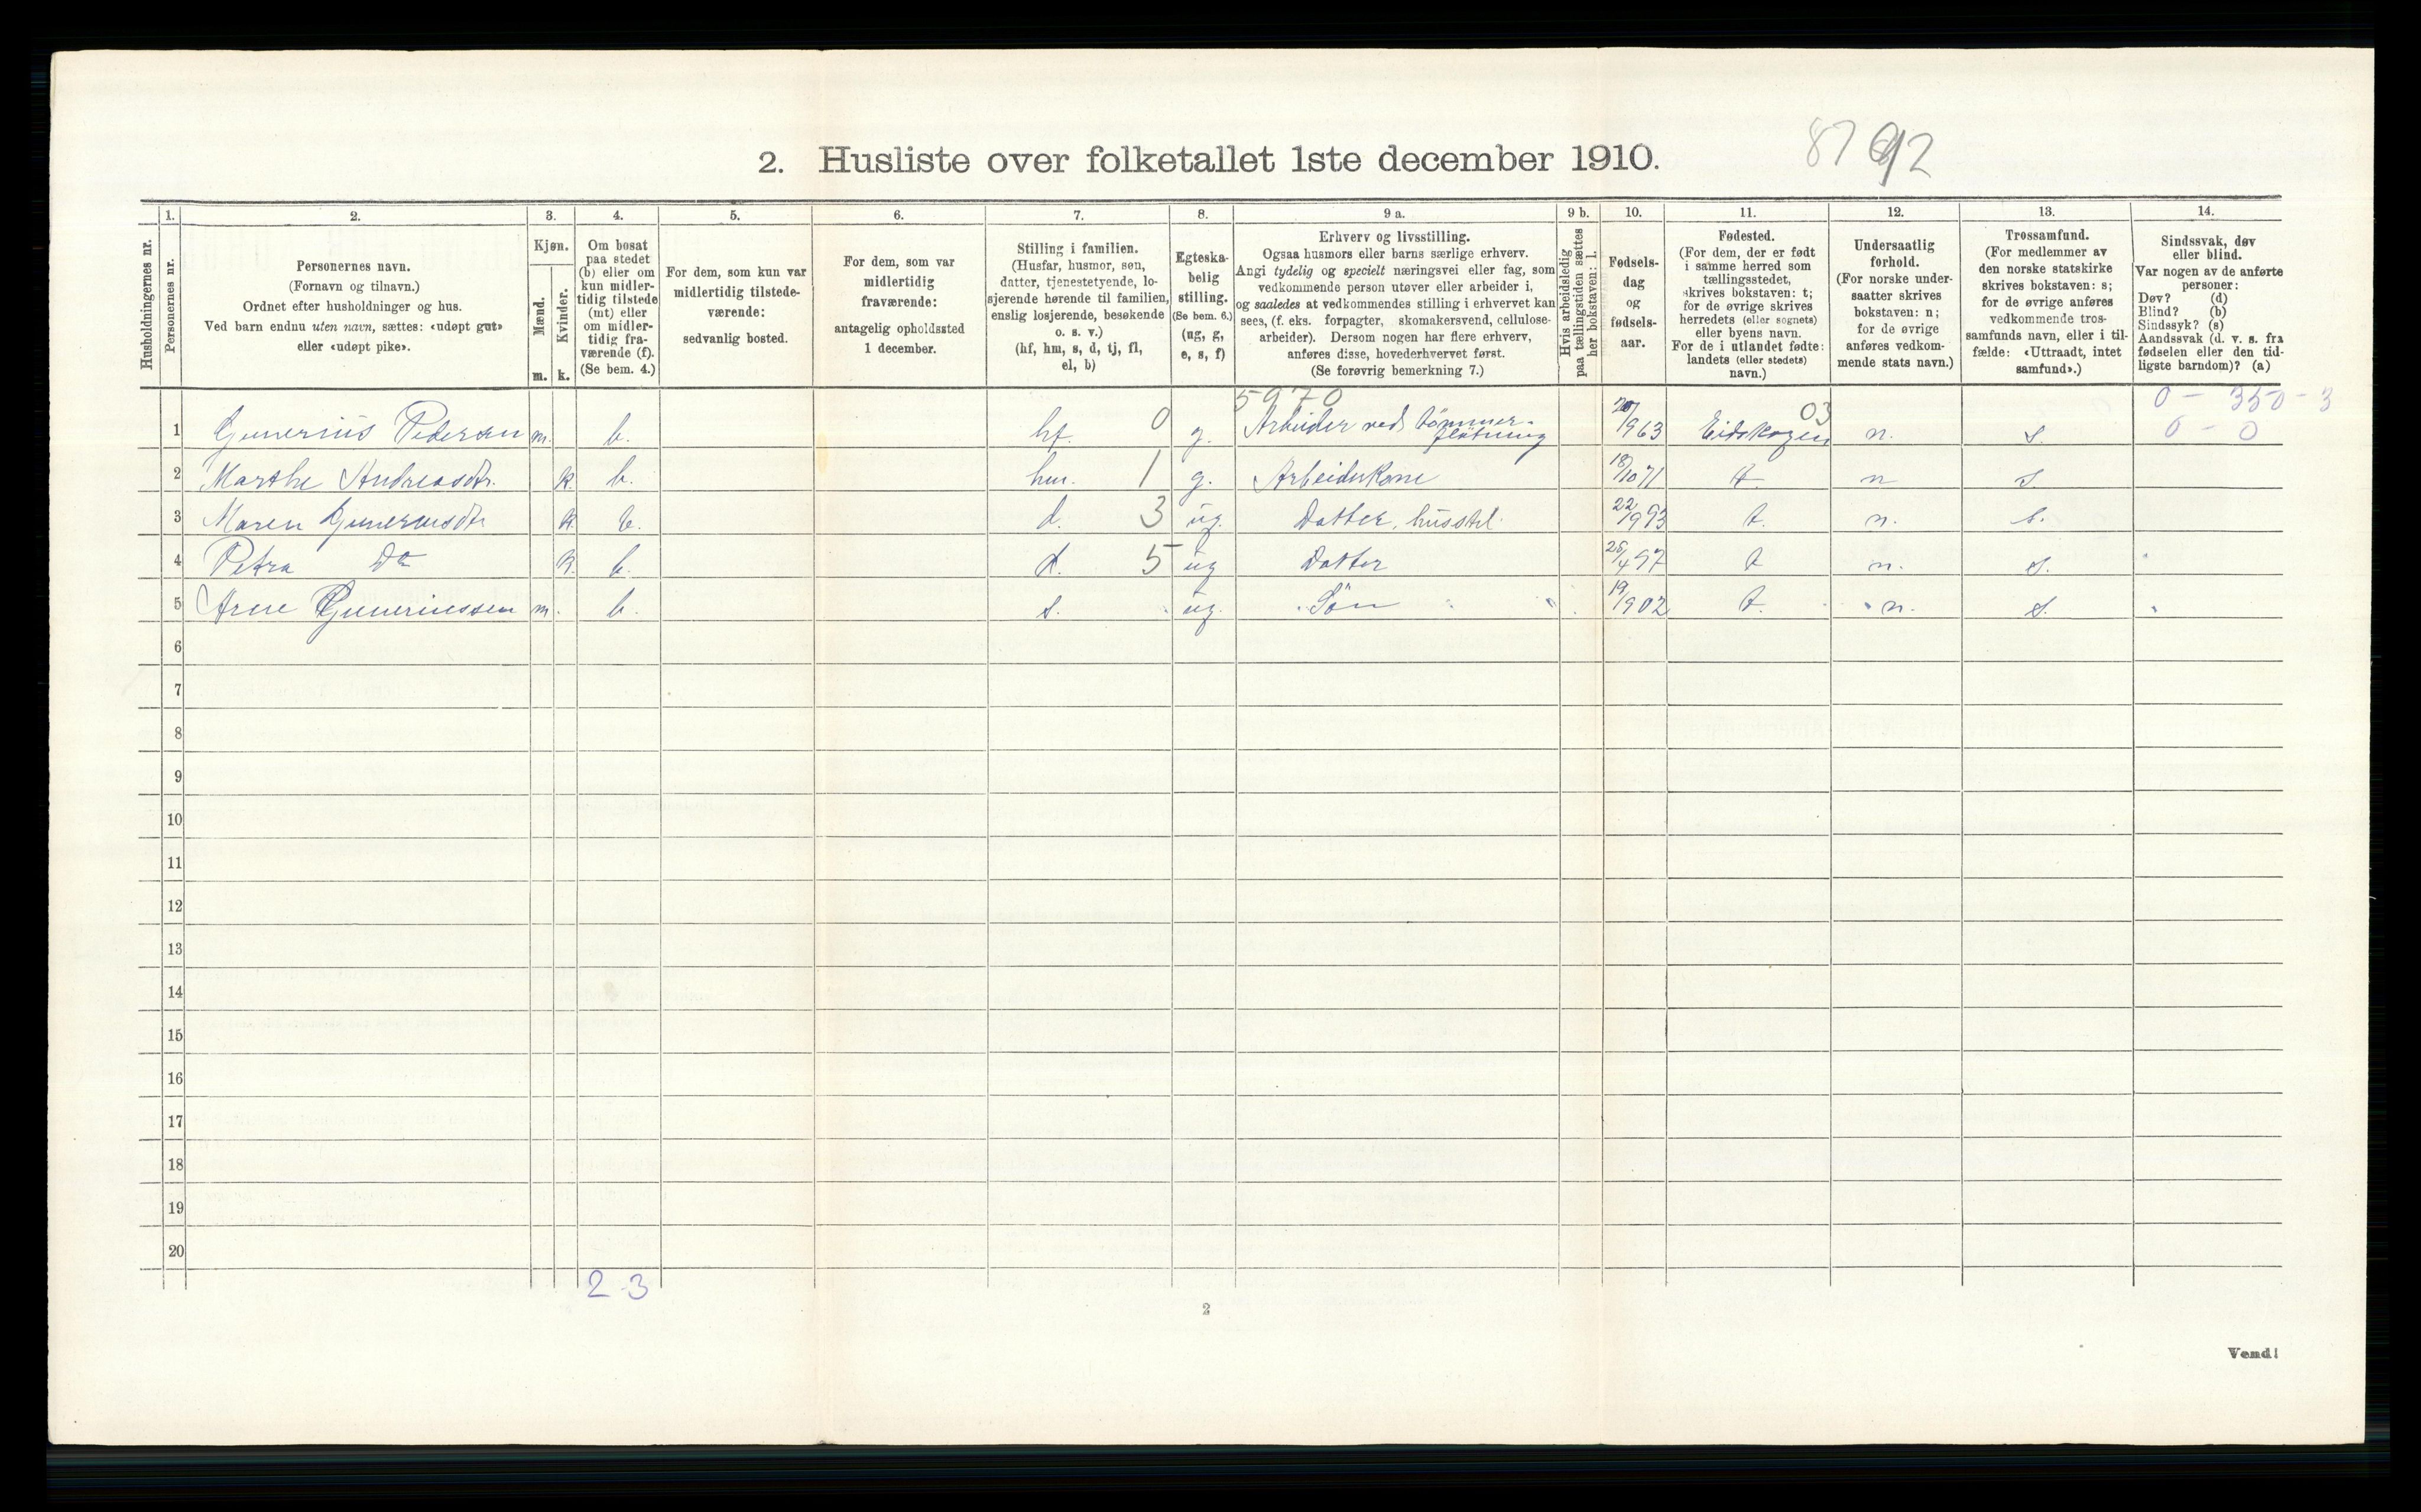 8792
2. Husliste over folketallet 1ste december 1910.
1. 2. 3. 4. 5. 6. 7. 8. 9 a. 9 b. 10. 11. 12. 13. 14.
Husholdningernes nr.
Personernes nr.
Personernes navn.
(Fornavn og tilnavn.)
Ordnet efter husholdninger og hus.
Ved barn endnu uten navn, sættes: «udøpt gut»
eller «udøpt pike».
Kjøn.
Mænd.
Kvinder.
m. k.
Om bosat
paa stedet
(b) eller om
kun midler-
tidig tilstede
(mt) eller
om midler-
tidig fra-
værende (f).
(Se bem. 4.)
For dem, som kun var
midlertidig tilstede-
værende:
sedvanlig bosted.
For dem, som var
midlertidig
fraværende:
antagelig opholdssted
1 december.
Stilling i familien.
(Husfar, husmor, søn,
datter, tjenestetyende, lo-
sjerende hørende til familien,
enslig losjerende, besøkende
o. s. v.)
(hf, hm, s, d, tj, fl,
el, b)
Egteska-
belig
stilling.
(Se bem. 6.)
(ug, g,
e, s, f)
Erhverv og livsstilling.
Ogsaa husmors eller barns særlige erhverv.
Angi tydelig og specielt næringsvei eller fag, som
vedkommende person utøver eller arbeider i,
og saaledes at vedkommendes stilling i erhvervet kan
sees, (f. eks. forpagter, skomakersvend, cellulose-
arbeider). Dersom nogen har flere erhverv,
anføres disse, hovederhvervet først.
(Se forøvrig bemerkning 7.)
Hvis arbeidsledig
paa tællingstiden sættes
her bokstaven: l.
Fødsels-
dag
og
fødsels-
aar.
Fødested.
(For dem, der er født
i samme herred som
tællingsstedet,
skrives bokstaven: t;
for de øvrige skrives
herredets (eller sognets)
eller byens navn.
For de i utlandet fødte:
landets (eller stedets)
navn.)
Undersaatlig
forhold.
(For norske under-
saatter skrives
bokstaven: n;
for de øvrige
anføres vedkom-
mende stats navn.)
Trossamfund.
(For medlemmer av
den norske statskirke
skrives bokstaven: s;
for de øvrige anføres
vedkommende tros-
samfunds navn, eller i til-
fælde: «Uttraadt, intet
samfund».)
Sindssvak, døv
eller blind.
Var nogen av de anførte
personer:
Døv? (d)
Blind? (b)
Sindssyk? (s)
Aandssvak (d. v. s. fra
fødselen eller den tid-
ligste barndom)? (a)
5970 03 0 - 350 - 3
1 Gunerius Pedersen m. b. hf. 0 g. Arbeider ved tømmer-
fløtning /963 Eidskogen n. s. 0 - 0
2 Marthe Andreasdtr. k. b. hm. 1 g. Arbeiderkone 18/10 71 t. n s.
3 Maren Gunerusdtr k. b. d. 3 ug. Datter, husstel. 22/9 93 t. n. s.
4 Petra Do k. b. d. 5 ug Datter /4 97 t n. s.
5 Arne Guneriussen m. b. s. ug. Søn 19/1902 t. n. s.
6
7
8
9
10
11
12
13
14
15
16
17
18
19
20
2 - 3
2
Vend!